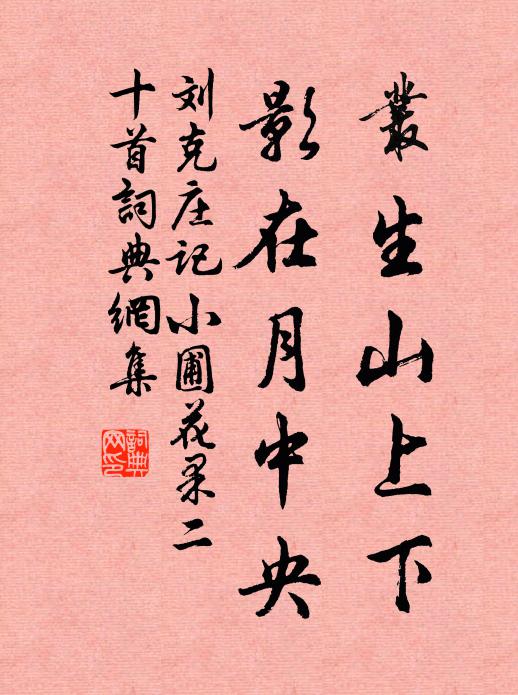 叢生山上下
影在月中央
刘克庄记小圃花果二
十首詞典網集
詞典网印